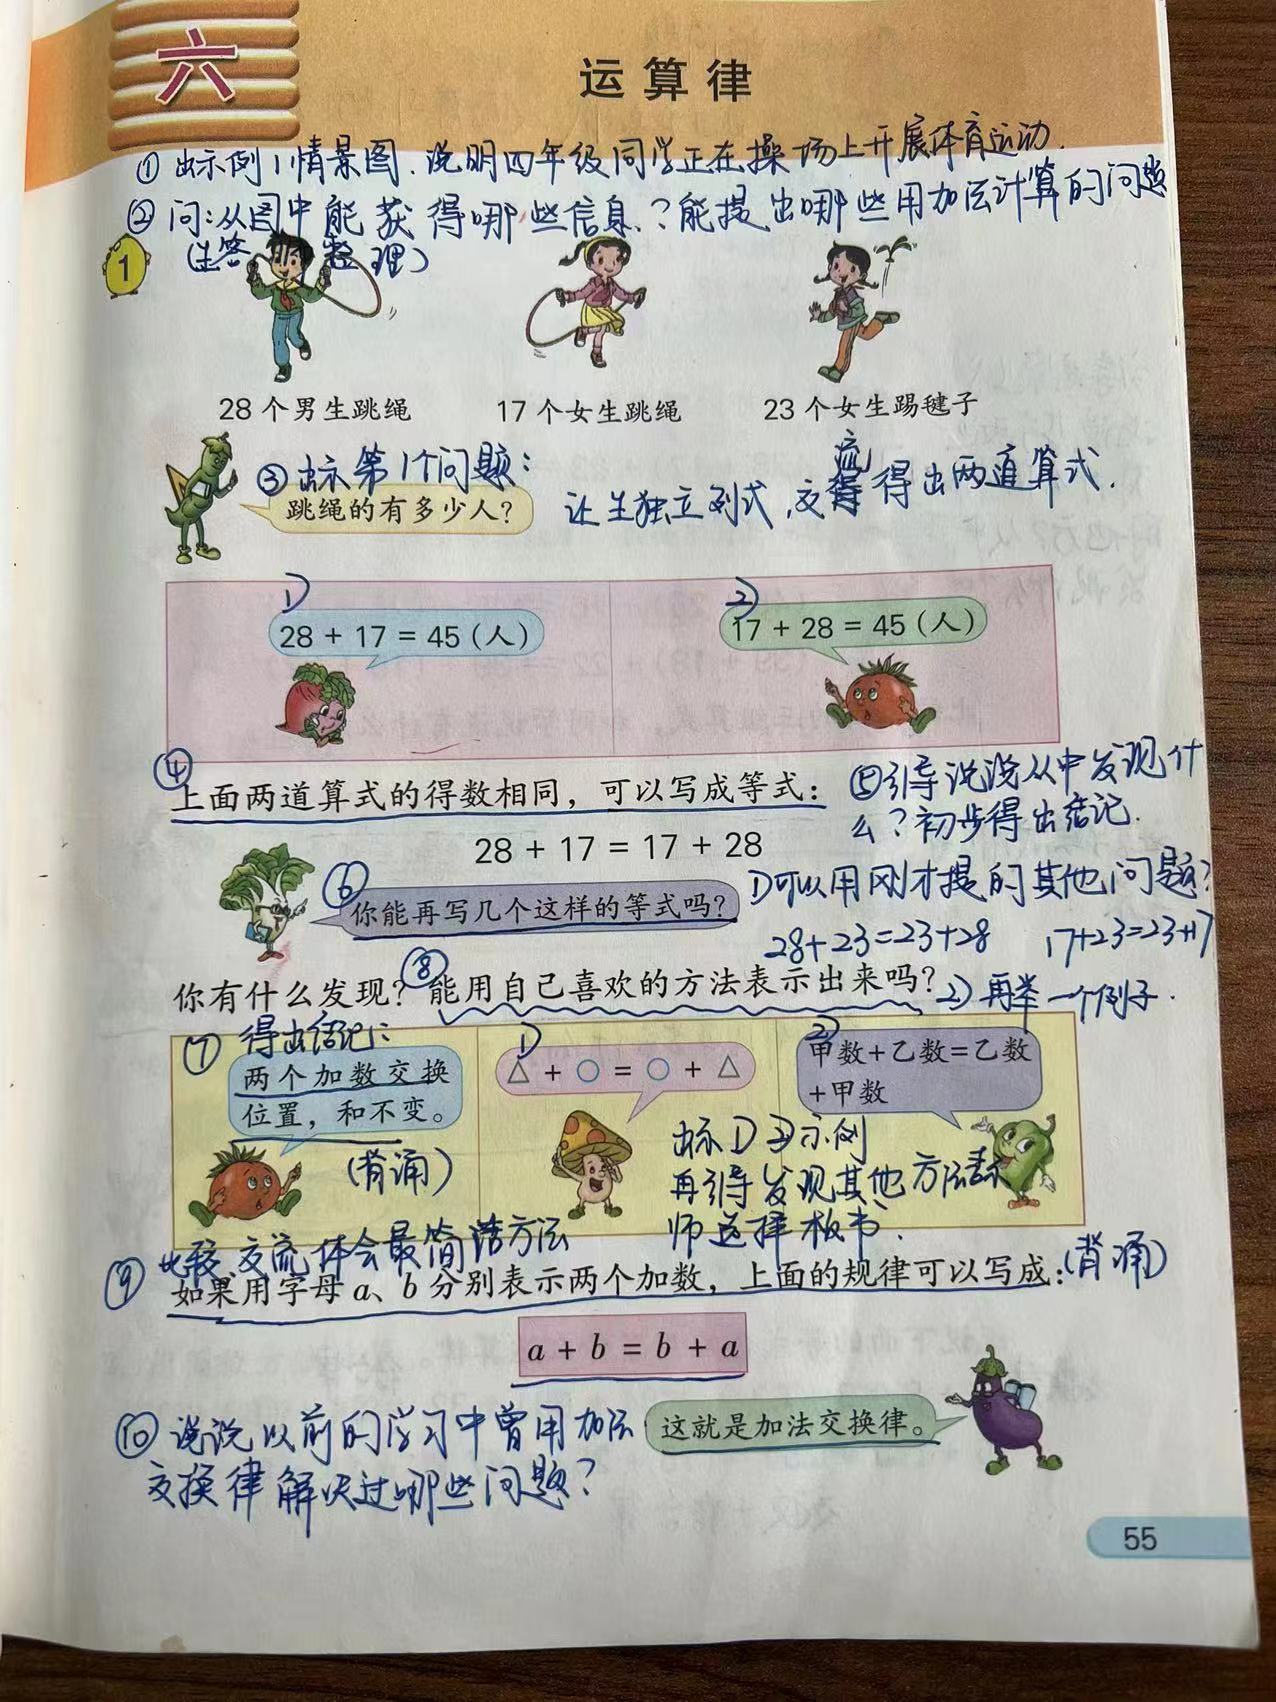 六
运算律
① 出示例1情景图.说明四年级同学正在操场上开展体育运动.
② 问:从图中能获得哪些信息?能提出哪些用加法计算的问题
(生答 整理)
1
28个男生跳绳
17个女生跳绳
23个女生踢毽子
③ 出示第1个问题:
跳绳的有多少人?
让生独立列式,交流得出两道算式.
1)
28 + 17 = 45(人)
2)
17 + 28 = 45(人)
④
上面两道算式的得数相同,可以写成等式:
⑤引导说说从中发现什
么?初步得出结论.
28 + 17 = 17 + 28
⑥
你能再写几个这样的等式吗?
1)可以用刚才提的其他问题?
28+23=23+28 17+23=23+17
2)再举一个例子.
你有什么发现?⑧能用自己喜欢的方法表示出来吗?
⑦ 得出结论:
两个加数交换
位置,和不变。
(背诵)
1)
△ + ○ = ○ + △
2)
甲数+乙数=乙数
+甲数
出示1) 2)示例
再引导发现其他方法表示
师选择板书.
比较交流体会最简洁方法
⑨
如果用字母a、b分别表示两个加数,上面的规律可以写成:(背诵)
a + b = b + a
这就是加法交换律。
⑩ 说说以前的学习中曾用加法
交换律解决过哪些问题?
55